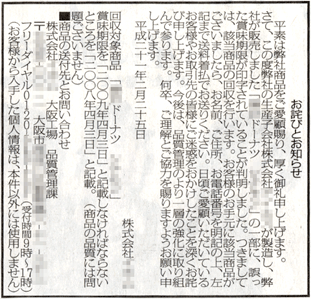 お詫びとお知らせ
平素は弊社商品をご愛顧賜り、厚く御礼申し上げます。
さて、この度弊社の生産子会社株式会社 が製造し、弊
社が販売した「 ドーナツ 」の一部に、誤っ
た賞味期限が印字されていることが判明しました。つきまして
は、該当商品の回収を行います。お客様のお手元に該当商品が
ございましたら、お名前、ご住所、お電話番号を明記の上、左
記まで送料着払でお送りください。日頃ご愛顧いただいている
お客様やお取引先の皆様へご迷惑をおかけしたことを深くお詫
び申し上げます。今後は、品質管理のより一層の強化に取り組
んで参ります。何卒、ご理解とご協力を賜りますようお願い申
し上げます。
平成二十一年二月二十五日
株式会社
回収対象商品「 ドーナツ 」
賞味期限を「二〇〇九年四月三日」と記載しなければならない
ところを「二〇〇八年四月三日」と記載。(商品の品質には問
題ございません)
■商品の送付先とお問い合わせ
株式会社 大阪工場 品質管理課
〒 大阪市
フリーダイヤル〇一二〇- (受付時間9時~17時)
(お客様から入手した個人情報は、本件以外には使用しません)